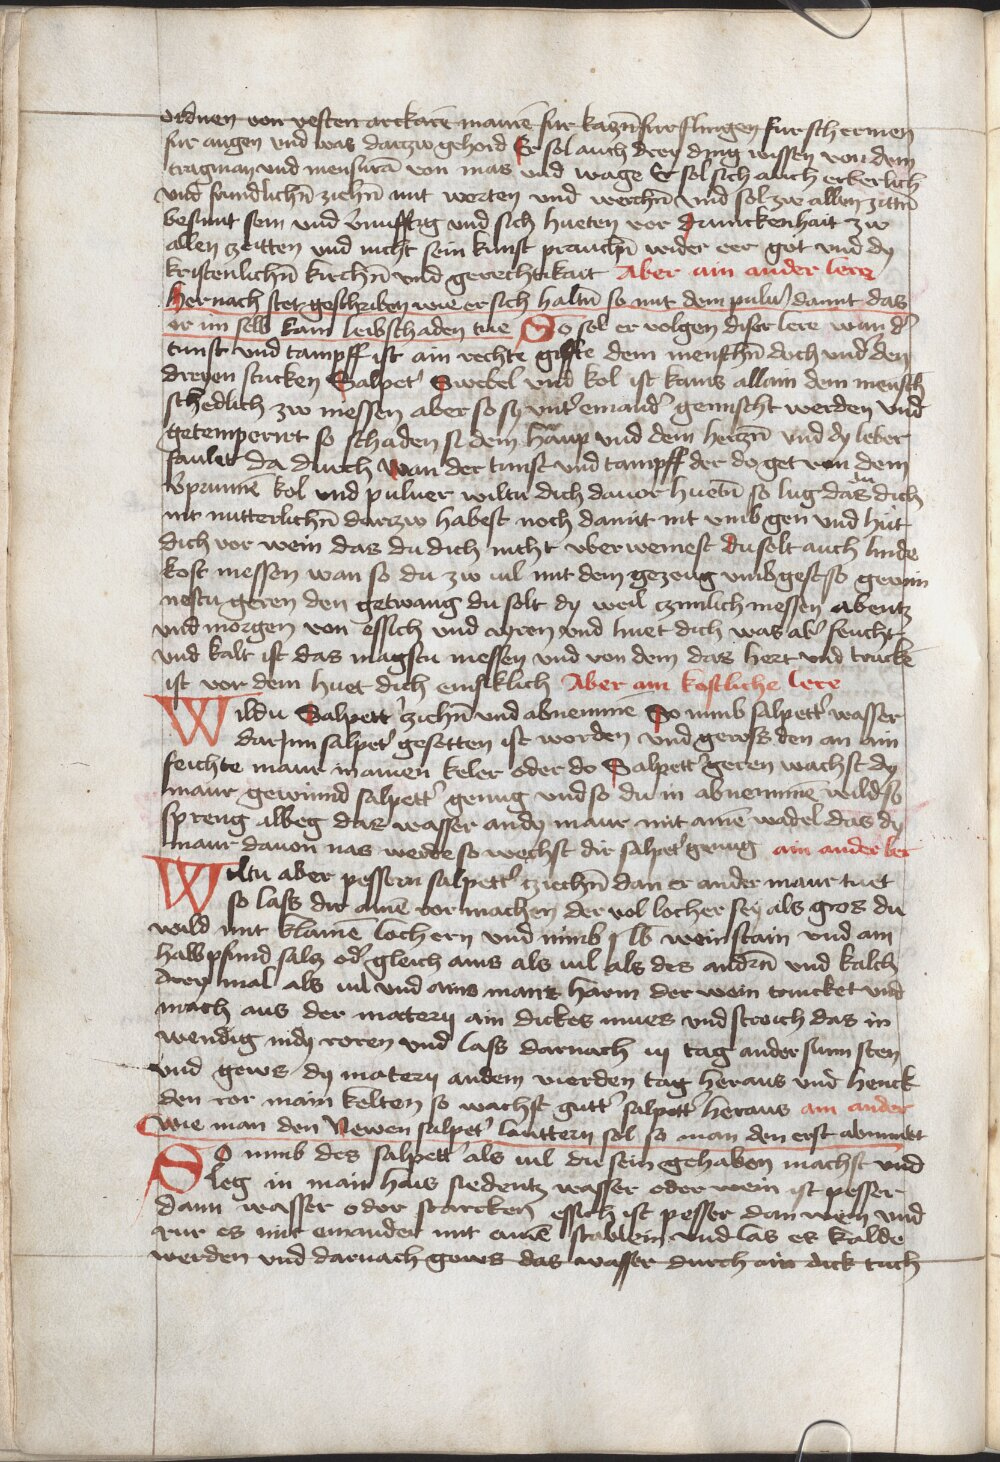 ordnen von vesten arckaren mauren fur kaczn fur slingen fur schermen
fur augen und was darzw gehord Er sol auch drey ding wissen von dem
tragman und mensuram von mas und wage Er sol sich auch erberlich
vnd frundlichn ziehn mit worten und werchn vnd sol zw allen zittn
besint sein und vnufftig und sich hueten vor drunckenhait zw
allen zeitten und nicht sein kunst prauchn wider eer got vnd dy
kristenlichn kirchn vnd gerechtikait Aber ain ander lere
hernach stet geschriben wie er sich haltn so mit dem puluer damit das
er im selb kain leibschaden tue So sol er volgen diser lere wan der
tunst vnd tampff ist ain rechte gifte dem menschn doch vnder den
dreyen stucken Salpeter Swebel vnd kol ist kains allain dem mensch
schedlich zw niessen aber so sy vnter einander gemischt werden vnd
getemperirt so schaden si dem haup vnd dem herczn vnd dy leber
faulet da durch wan der tunst vnd tampff der do get von dem
prunnen kol vnd puluer wiltu dich dauor huetn so lug das du dich
nit nutterlichn darczw habest noch damit nit vmb gen vnd hut
dich vor wein das du dich nicht vberweinest du solt auch linde
kost niessen wan so du zw uil mit dem gezeug vmbgest so gewin
nestu geren den getwang du solt dy weil czimlich niessen abentz
vnd morgen von essich vnd ayren vnd huet dich was aber feucht
vnd kalt ist das magstu niessen vnd von dem das hert vnd trucke
ist vor dem huet dich emsiklich Aber ain kostliche lere
Wildu Salpetter ziehn vnd abnemme So nimb salpetter wasser
dar Inn salpeter gesotten ist worden vnd gewss den an ain
feichte maur in ainen keler oder do Salpetter geren wachst dy
maur gewinnd salpetter genug vnd so du in abnemmen wild so
spreng albeg das wasser an dy maur mit ainem wadel das dy
maur dauon nas werde so wechst dir salpeter genug ain ander ler
Wiltu aber pessern salpetter cziechn dan er an der maur tuet
so lass dir ainen ror machen der vol locher sey als gros du
wild mit klainen lochern vnd nimb i lb weinstain vnd ain
halb pfund salcz oder gleich ains als uil als des andern vnd kalch
drey mal als uil vnd ains mans harm der wein trincket vnd
mach aus der matery ain dickes mues vnd streich das in
wendig in dy roren vnd lass darnach iij tag an der sunn sten
vnd gews dy matery an dem vierden tag heraus vnd henck
den ror in ain kelten so wachst gutter salpetter heraus ain ander
wie man den Newen salpeter lauttern sol so man den erst abnimbt
So nimb des salpetter als uil du sein gehaben machst vnd
leg in in ain hais siedentz wasser oder wein ist pesser
dann wasser oder starcken essich ist pesser dan wein vnd
rur es mit einander mit ainem stablein vnd las es kalde
werden vnd darnach gews das wasser durch ain dick tuch